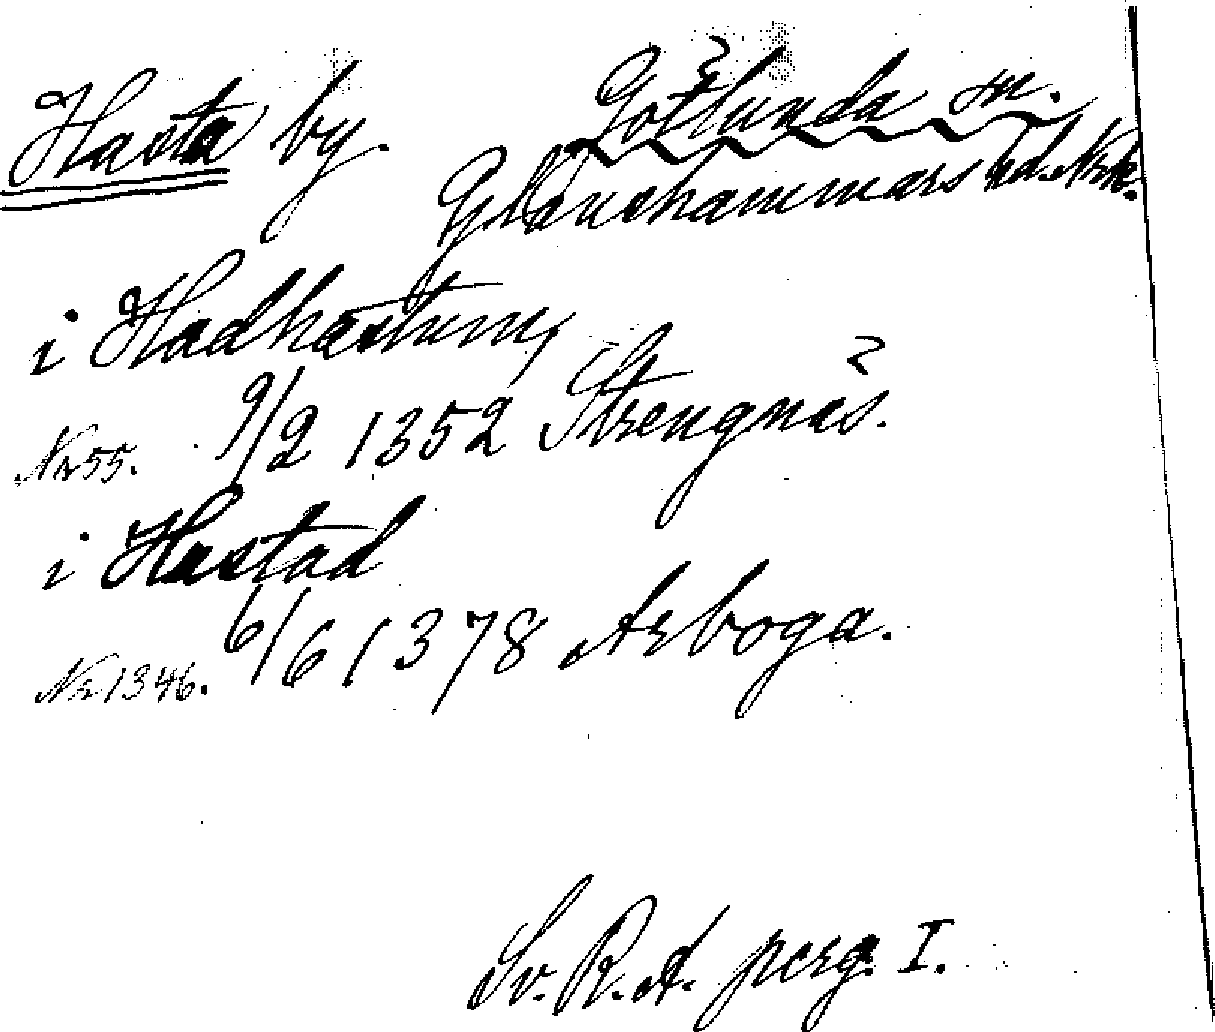 Hasta by.
Götlunda sn.
Glanshammars hd. Nrke.
i Hadhastum,
Nr 55. 9/2 1352 Strengnäs.
i Hastad
Nr 1346. 6/6 1378 Arboga.
Sv. R. A. perg. I.